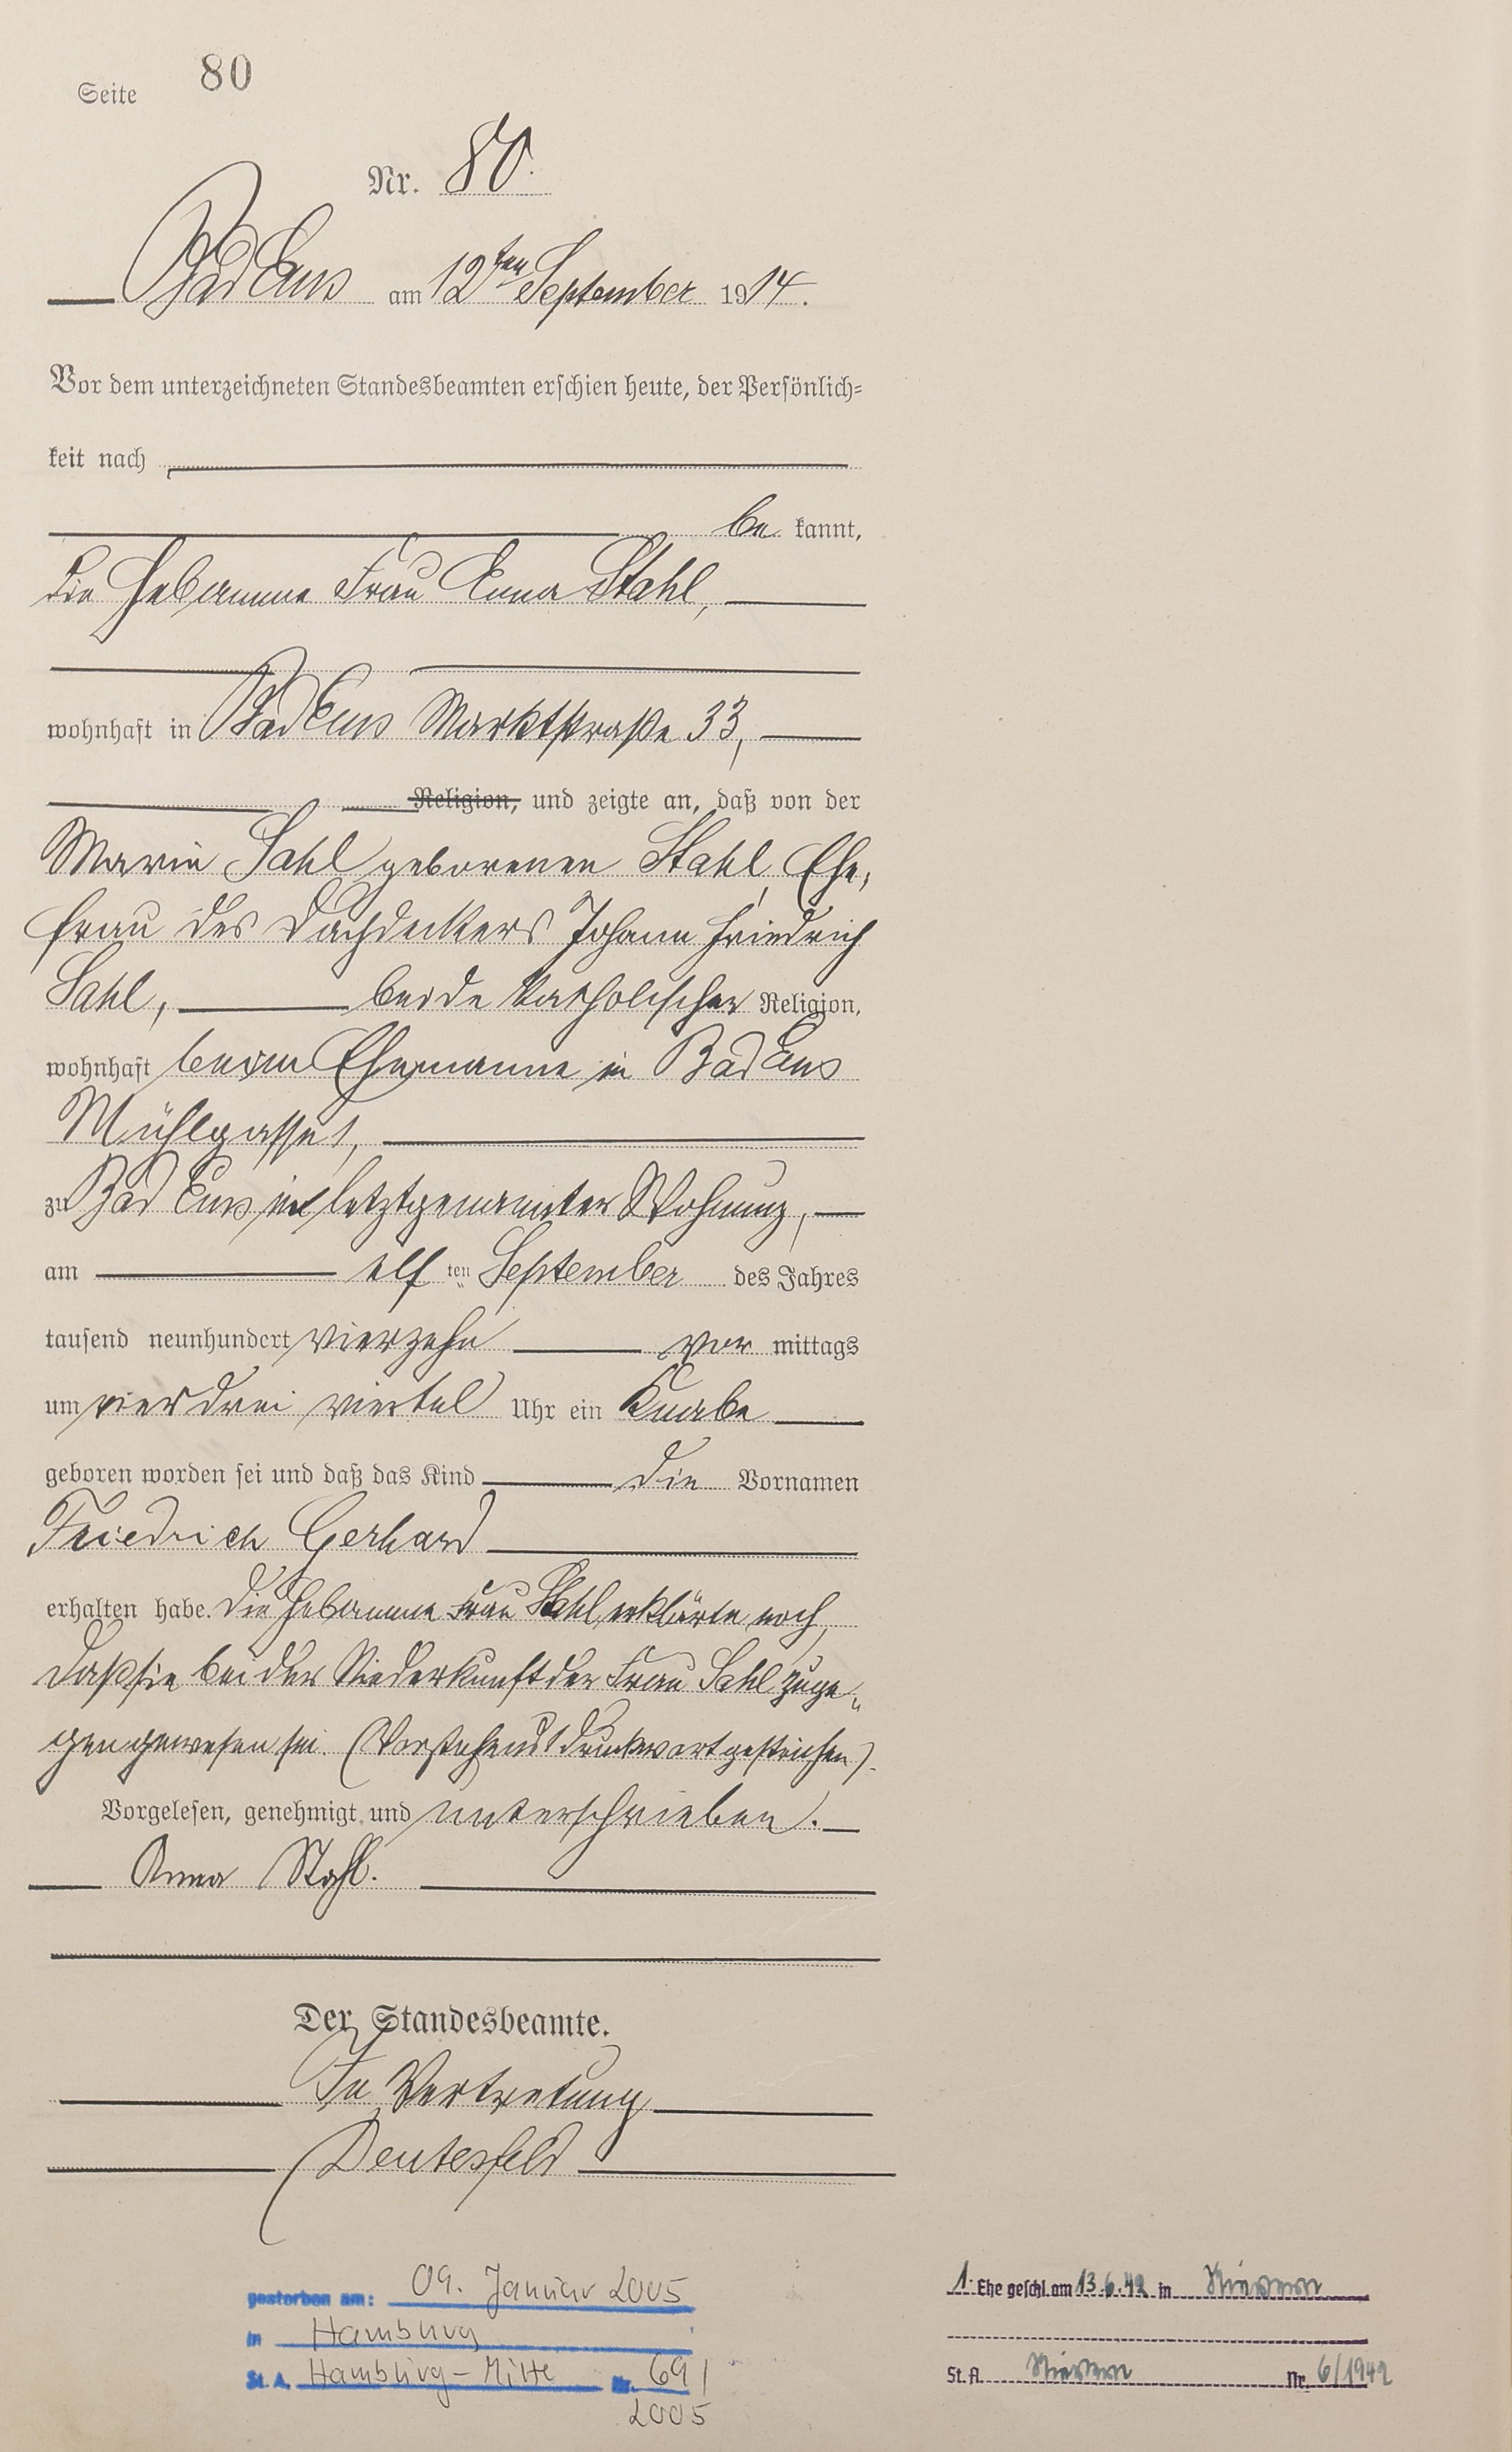 Seite 80
Nr. 80.
Bad Ems am 12ten September 1914.
Vor dem unterzeichneten Standesbeamten erschien heute, der Persönlich-
keit nach
be kannt,
die Hebamme Frau Anna Stahl,
wohnhaft in Bad Ems Marktstraße 33,
Religion, und zeigte an, daß von der
Maria Sahl geborenen Stahl, Ehe-
frau des Dachdeckers Johann Friedrich
Sahl, beide katholischer Religion,
wohnhaft beim Ehemanne in Bad Ems
Mühlgasse 1,
zu Bad Ems in letztgenannter Wohnung,
am elf ten September des Jahres
tausend neunhundert vierzehn vor mittags
um vier drei viertel Uhr ein Knabe
geboren worden sei und daß das Kind die Vornamen
Friedrich Gerhard
erhalten habe. Die Hebamme Frau Stahl erklärte noch,
daß sie bei der Niederkunft der Frau Sahl zuge-
gen gewesen sei. (Vorstehend 1 Druckwort gestrichen).
Vorgelesen, genehmigt und unterschrieben.
Anna Stahl.
Der Standesbeamte.
In Vertretung
Deutesfeld
gestorben am: 09. Januar 2005
in Hamburg
St. A. Hamburg-Mitte Nr. 69/
2005
1. Ehe geschl. am 13.6.42 in Nievern
St. A. Nievern Nr. 6/1942